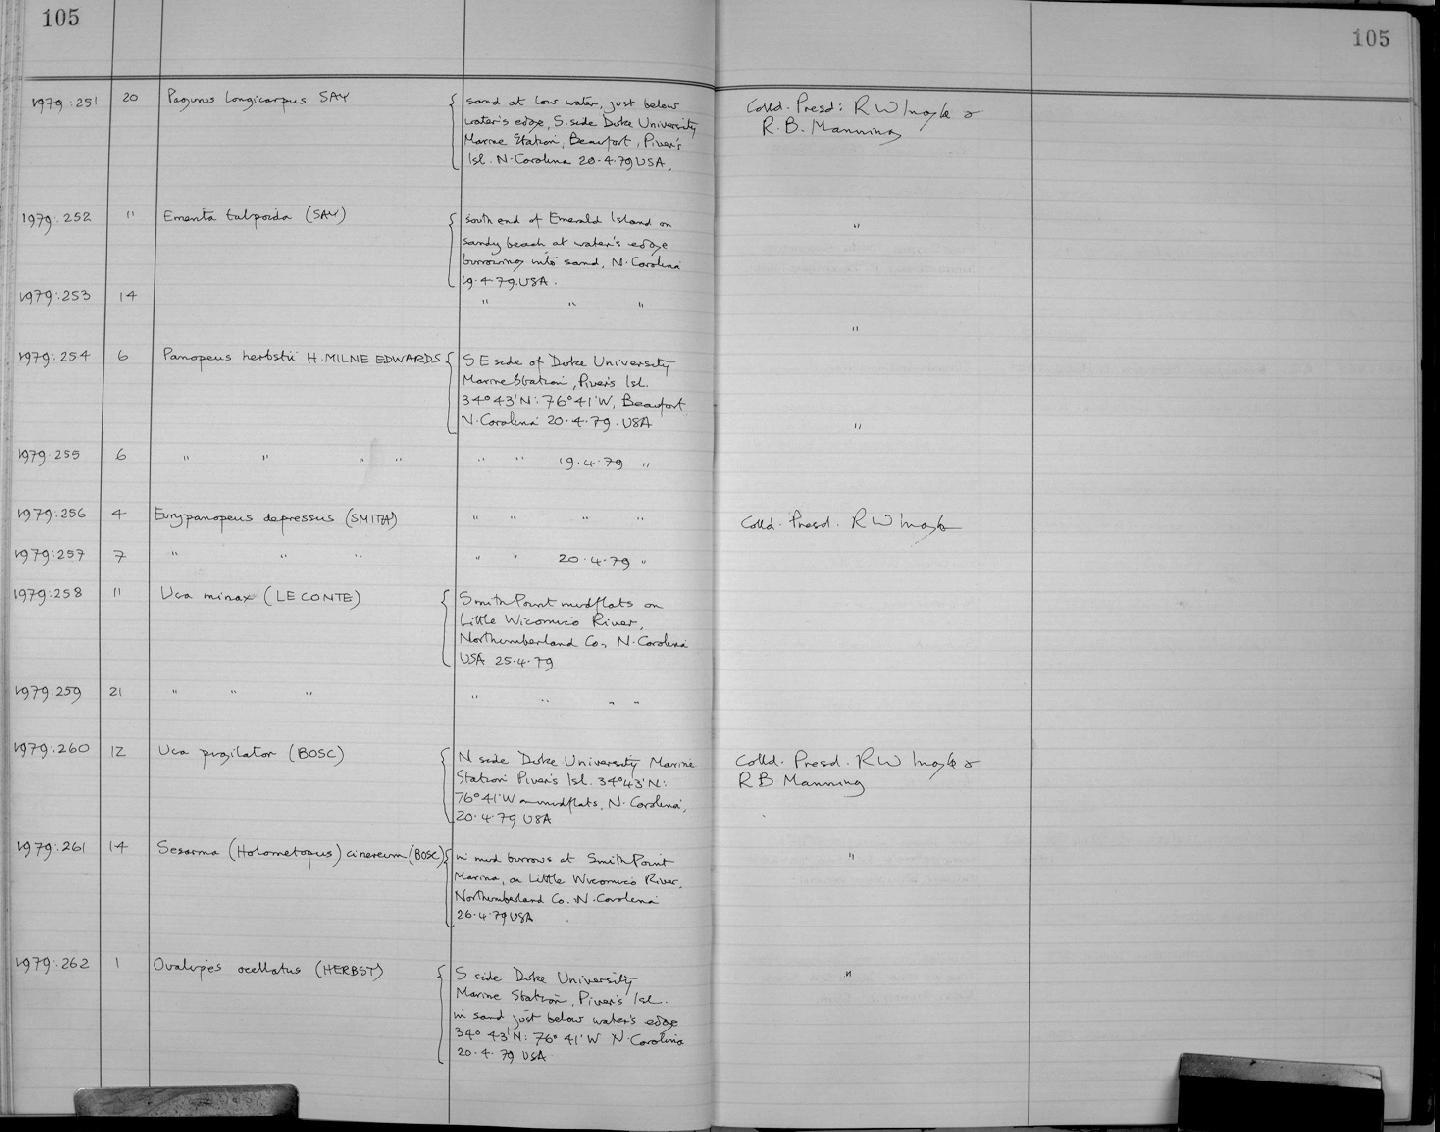 105
105
1979:251 20 Pagurus longicarpus SAY sand at low water, just below Colld. Presd: R W Ingle &
water's edge, S. side Duke University R. B. Manning
Marine Station, Beaufort, Piver's
Isl. N. Carolina 20.4.79 USA.
1979:252 11 Emerita talpoida (SAY) south end of Emerald Island on "
sandy beach at water's edge
burrowing into sand, N. Carolina
19.4.79 USA.
1979:253 14 " " " "
1979:254 6 Panopeus herbstii H. MILNE EDWARDS S E side of Duke University
Marine Station, Piver's Isl.
34°43'N: 76°41'W, Beaufort
N. Carolina 20.4.79. USA "
1979:255 6 " " " " " " 19.4.79 "
1979:256 4 Eurypanopeus depressus (SMITH) " " " " Colld. Presd. R W Ingle
1979:257 7 " " " " " 20.4.79 "
1979:258 11 Uca minax (LE CONTE) Smith Point mudflats on
Little Wicomico River,
Northumberland Co., N. Carolina
USA 25.4.79
1979 259 21 " " " " " " "
1979:260 12 Uca pugilator (BOSC) N side Duke University Marine Colld. Presd. R W Ingle &
Station Piver's Isl. 34°43'N: R B Manning
76°41'W on mudflats, N. Carolina,
20.4.79 USA
1979:261 14 Sesarma (Holometopus) cinereum (BOSC) in mud burrows at Smith Point "
Marina, on Little Wicomico River,
Northumberland Co. N. Carolina
26.4.79 USA
1979:262 1 Ovalipes ocellatus (HERBST) S side Duke University "
Marine Station, Piver's Isl.
in sand just below water's edge
34° 43'N: 76° 41'W N. Carolina
20.4.79 USA